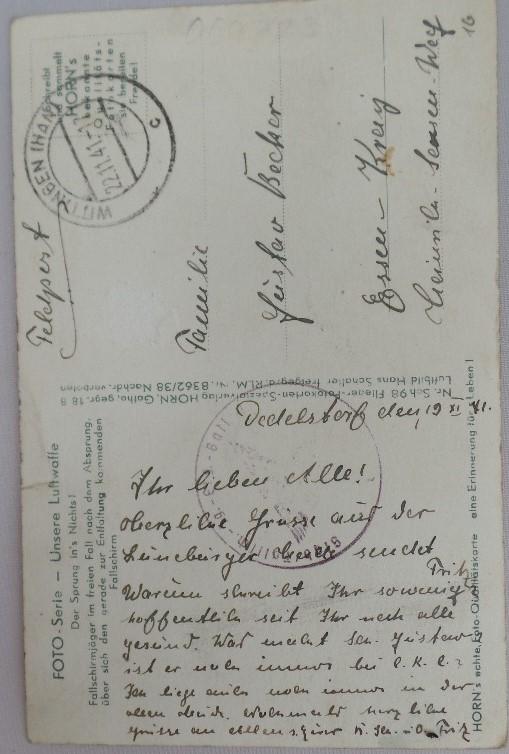 FOTO-Serie — Unsere Luftwaffe
Der Sprung in's Nichts!
Fallschirmjäger im freien Fall nach dem Absprung,
über sich den gerade zur Entfaltung kommenden
Fallschirm
Nr. Sch 98 Flieger-Fotokarten-Spezialverlag HORN, Gotha, gegr. 18
Luftbild Hans Schaller freigeg. d. RLM. Nr. 8362/38 Nachdr. verboten
HORN's echte Foto-Qualitätskarte eine Erinnerung fürs Leben!
Schreibt
und sammelt
HORN's
bekannte
Qualitäts-
Fotokarten
sie bereiten
Freude!
WITTINGEN (HAN)
22.11.41
c
16
Feldpost
Familie
Gustav Becker
Essen-
Heinrich-
Dedelstorf den, 19 XI 41.
Ihr lieben Alle!
Grüsse aus der
Lüneburger sendet
Fritz
Warum schreibt Ihr so wenig
hoffentlich seit Ihr noch alle
gesund. Was macht Gustav
ist er noch immer bei
Ich liege auch noch immer in der
herzliche
Grüsse an Fritz